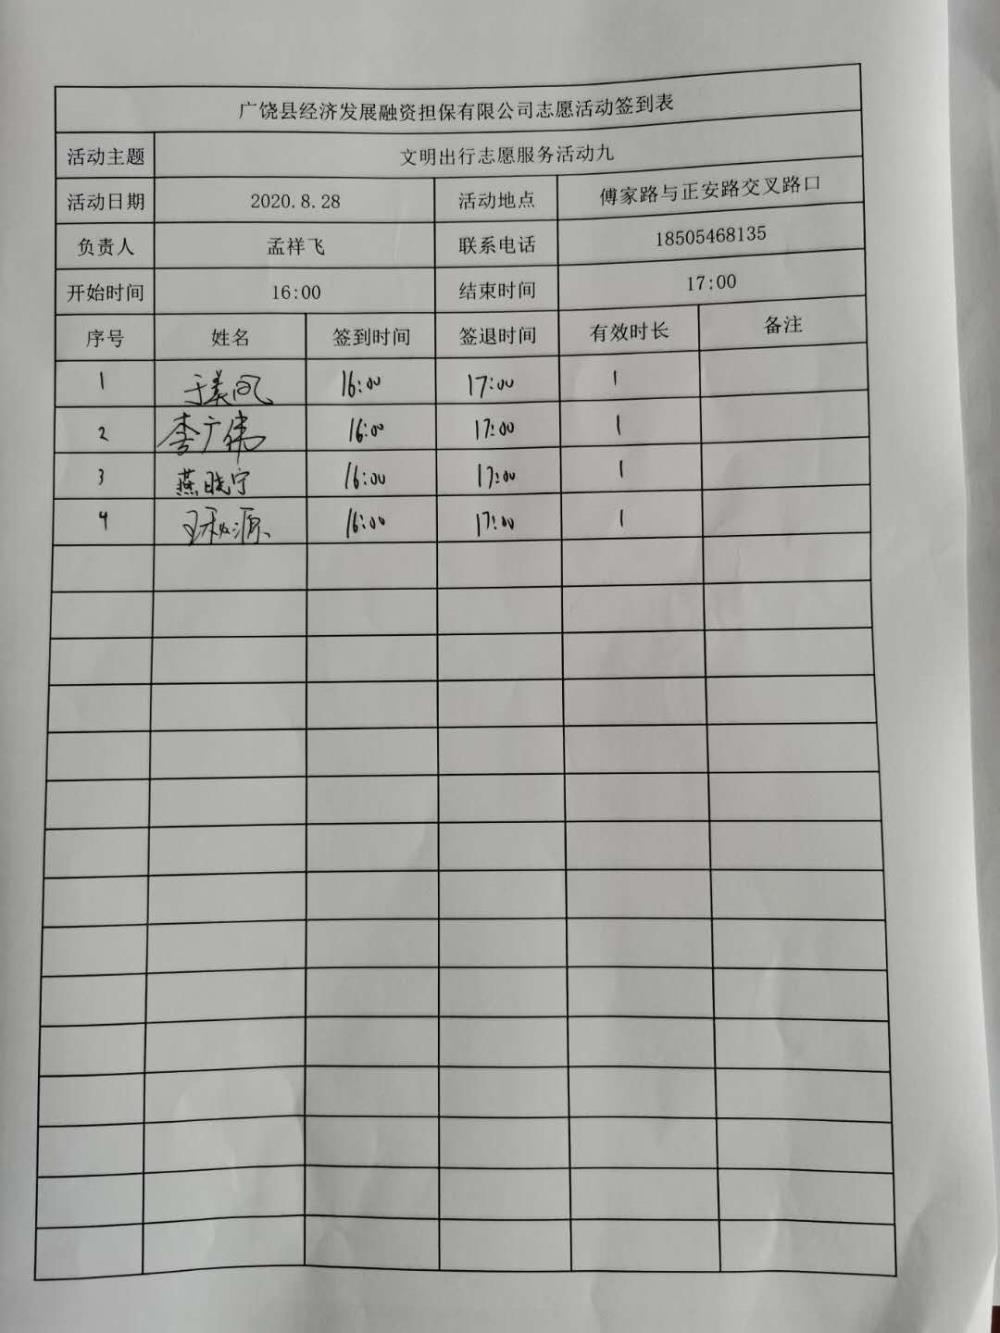 广饶县经济发展融资担保有限公司志愿活动签到表
活动主题 文明出行志愿服务活动九
活动日期 2020.8.28 活动地点 傅家路与正安路交叉路口
负责人 孟祥飞 联系电话 18505468135
开始时间 16:00 结束时间 17:00
序号 姓名 签到时间 签退时间 有效时长 备注
1 于美凤 16:00 17:00 1
2 李广伟 16:00 17:00 1
3 燕晓宁 16:00 17:00 1
4 16:00 17:00 1